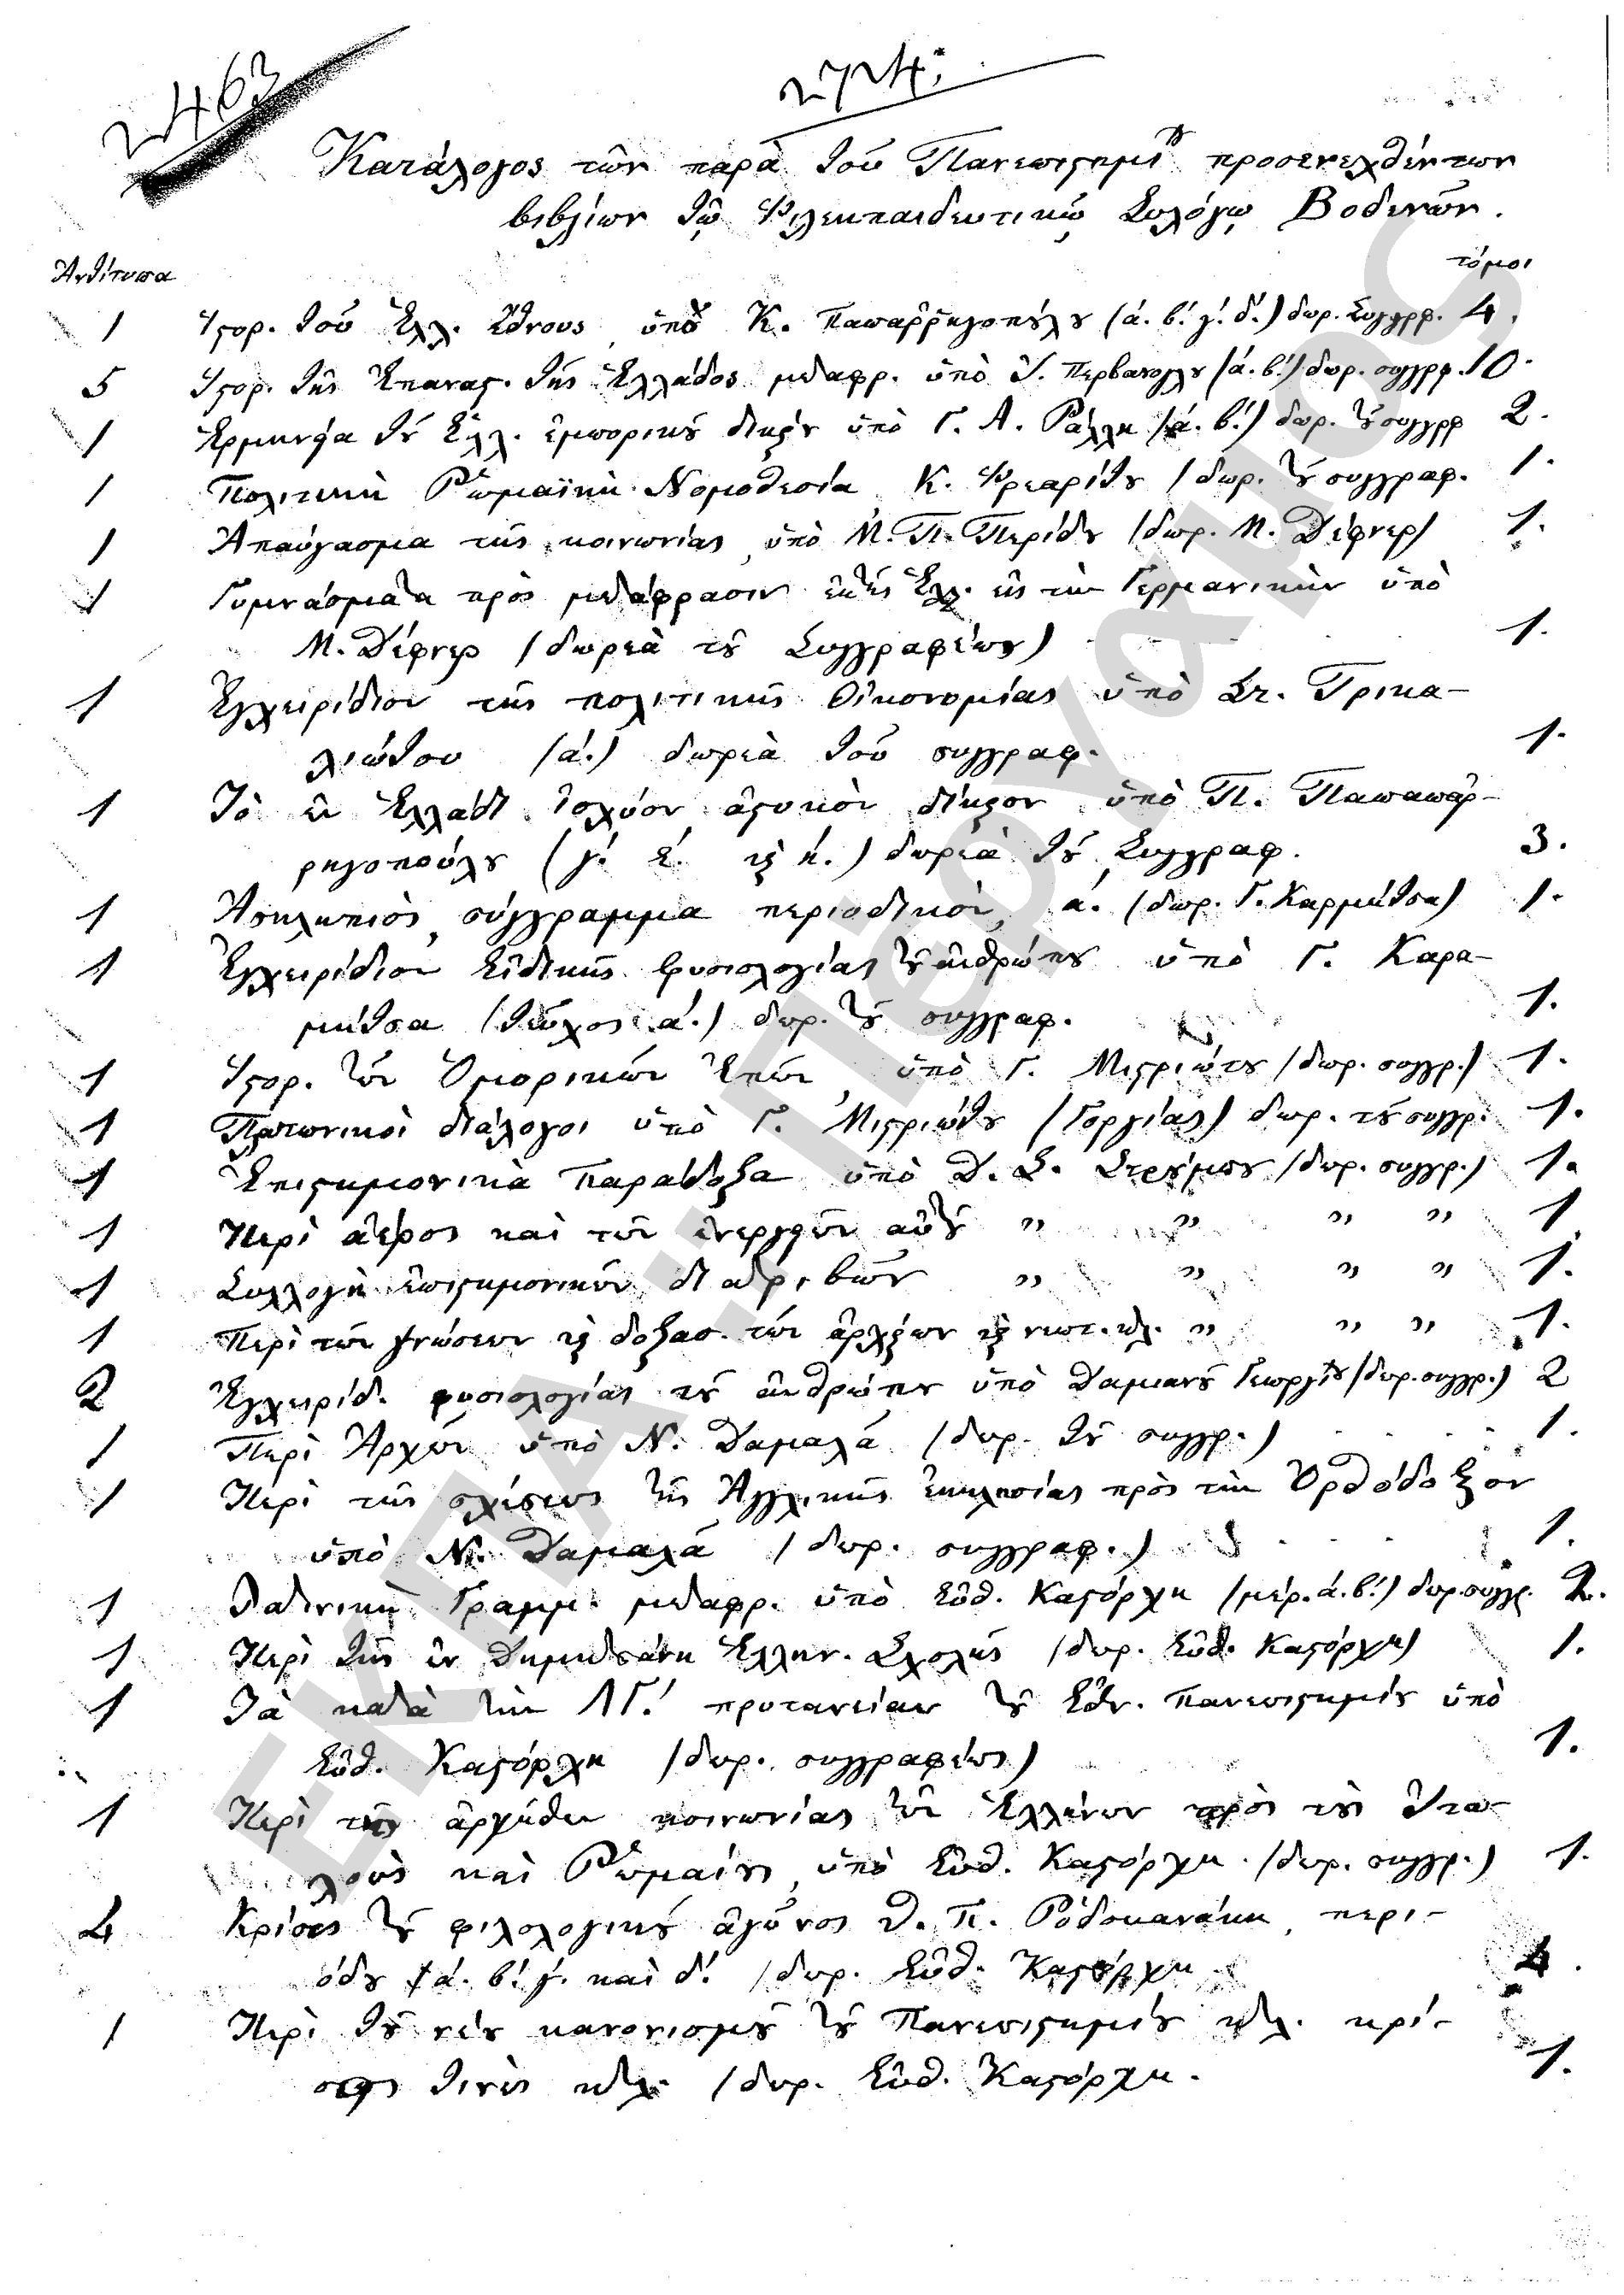 2463
2724.
Κατάλογος τῶν παρὰ τοῦ Πανεπιστημίου προσενεχθέντων
βιβλίων τῷ Φιλεκπαιδευτικῷ Συλόγῳ Βοδενῶν.
Ἀντίτυπα τόμοι
1 Ἱστορ. τοῦ Ἑλλ. Ἔθνους, ὑπὸ Κ. Παπαῤῥηγοπούλου (ά. β΄. γ΄. δ΄.) δωρ. Συγγρφ. 4.
5 Ἱστορ. τῆς Ἐπαναστ. τῆς Ἑλλάδος μεταφρ. ὑπὸ Ἰ. Περβανογλου (ά. β΄.) δωρ. συγγρφ. 10.
1 Ἑρμηνεία τοῦ Ἑλλ. ἐμπορικοῦ δικαίου ὑπὸ Γ. Α. Ράλλη (ά. β΄.) δωρ. τοῦ συγγρφ 2.
1 Πολιτικὴ Ῥωμαϊκὴ Νομοθεσία Κ. Φρεαρίτου (δωρ. τοῦ συγγραφ. 1.
1 Ἀπαύγασμα τῆς κοινωνίας, ὑπὸ Μ. Π. Περίδου (δωρ. Μ. Δέφνερ) 1.
1 Γυμνάσματα πρὸς μετάφρασιν ἐκ τῆς Ἑλλ. εἰς τὴν Γερμανικὴν ὑπὸ
Μ. Δέφνερ (δωρεὰ τοῦ Συγγραφέως) 1.
1 Ἐγχειρίδιον τῆς πολιτικῆς Οἰκονομίας ὑπὸ Στ. Τρικα-
λιώτου (ά.) δωρεὰ τοῦ συγγραφ. 1.
1 Τὸ ἐν Ἑλλάδι ἰσχύον ἀστυκὸν δίκαιον ὑπὸ Π. Παπαπαῤ-
ρηγοπούλου (γ΄. ε΄. καὶ η΄.) δωρεὰ τοῦ Συγγραφ. 3.
1 Ἀσκληπιὸς, σύγγραμμα περιοδικὸν, ά. (δωρ. Γ. Καρμήτσα) 1.
1 Ἐγχειρίδιον Εἰδικῆς φυσιολογίας τοῦ ἀνθρώπου ὑπὸ Γ. Καρα-
μήτσα (τεῦχος ά.) δωρ. τοῦ συγγραφ. 1.
1 Ἱστορ. τῶν Ὁμορικῶν Ἐπῶν, ὑπὸ Γ. Μιστριώτου (δωρ. συγγρ.) 1.
1 Πλατωνικοὶ διάλογοι ὑπὸ Γ. Μιστριώτου (Γοργίας) δωρ. τοῦ συγγρ. 1.
1 Ἐπιστημονικὰ Παράδοξα ὑπὸ Δ. Σ. Στρούμπου (δωρ. συγγρ.) 1.
1 Περὶ ἀέρος καὶ τῶν ἐνεργειῶν αὐτοῦ „ „ „ „ 1
1 Συλλογὴ ἐπιστημονικῶν διατριβῶν „ „ „ „ 1.
1 Περὶ τῶν γνώσεων καὶ δοξασ. τῶν ἀρχαίων καὶ νεωτ. κτλ. „ „ „ 1.
2 Ἐγχειρίδ. φυσιολογίας τοῦ ἀνθρώπου ὑπὸ Δαμιανοῦ Γεωργίου (δωρ. συγγρ.) 2
1 Περὶ Ἀρχῶν ὑπὸ Ν. Δαμαλᾶ (δωρ. τοῦ συγγρ.) 1.
1 Περὶ τῆς σχέσεως τῆς Ἀγγλικῆς ἐκκλησίας πρὸς τὴν Ὀρθόδοξον
ὑπὸ Ν. Δαμαλᾶ (δωρ. συγγραφ.) 1.
1 Λατινικὴ Γραμμ. μεταφρ. ὑπὸ Εὐθ. Καστόρχη (μέρ. ά. β΄.) δωρ. συγγρ. 2.
1 Περὶ τῆς ἐν Δημητσάνη Ἑλλην. Σχολῆς (δωρ. Εὐθ. Καστόρχη) 1.
1 Τὰ κατὰ τὴν ΛΓ΄. πρυτανείαν τοῦ Ἐθν. Πανεπιστημίου ὑπὸ
Εὐθ. Καστόρχη (δωρ. συγγραφέως) 1.
1 Περὶ τῆς ἀρχῆθεν κοινωνίας τῶν Ἑλλήνων πρὸς τοὺς Ἰτα-
λοὺς καὶ Ῥωμαίους, ὑπὸ Εὐθ. Καστόρχη. (δωρ. συγγρ.) 1.
4 Κρίσεις τοῦ φιλολογικοῦ ἀγῶνος Θ. Π. Ροδοκανάκη, περι-
όδου ά. β΄. γ΄. καὶ δ΄. (δωρ. Εὐθ. Καστόρχη 4.
1 Περὶ τοῦ νέου κανονισμοῦ τοῦ Πανεπιστημίου κτλ. κρί-
σεις τινὲς κτλ. (δωρ. Εὐθ. Καστόρχη. 1.